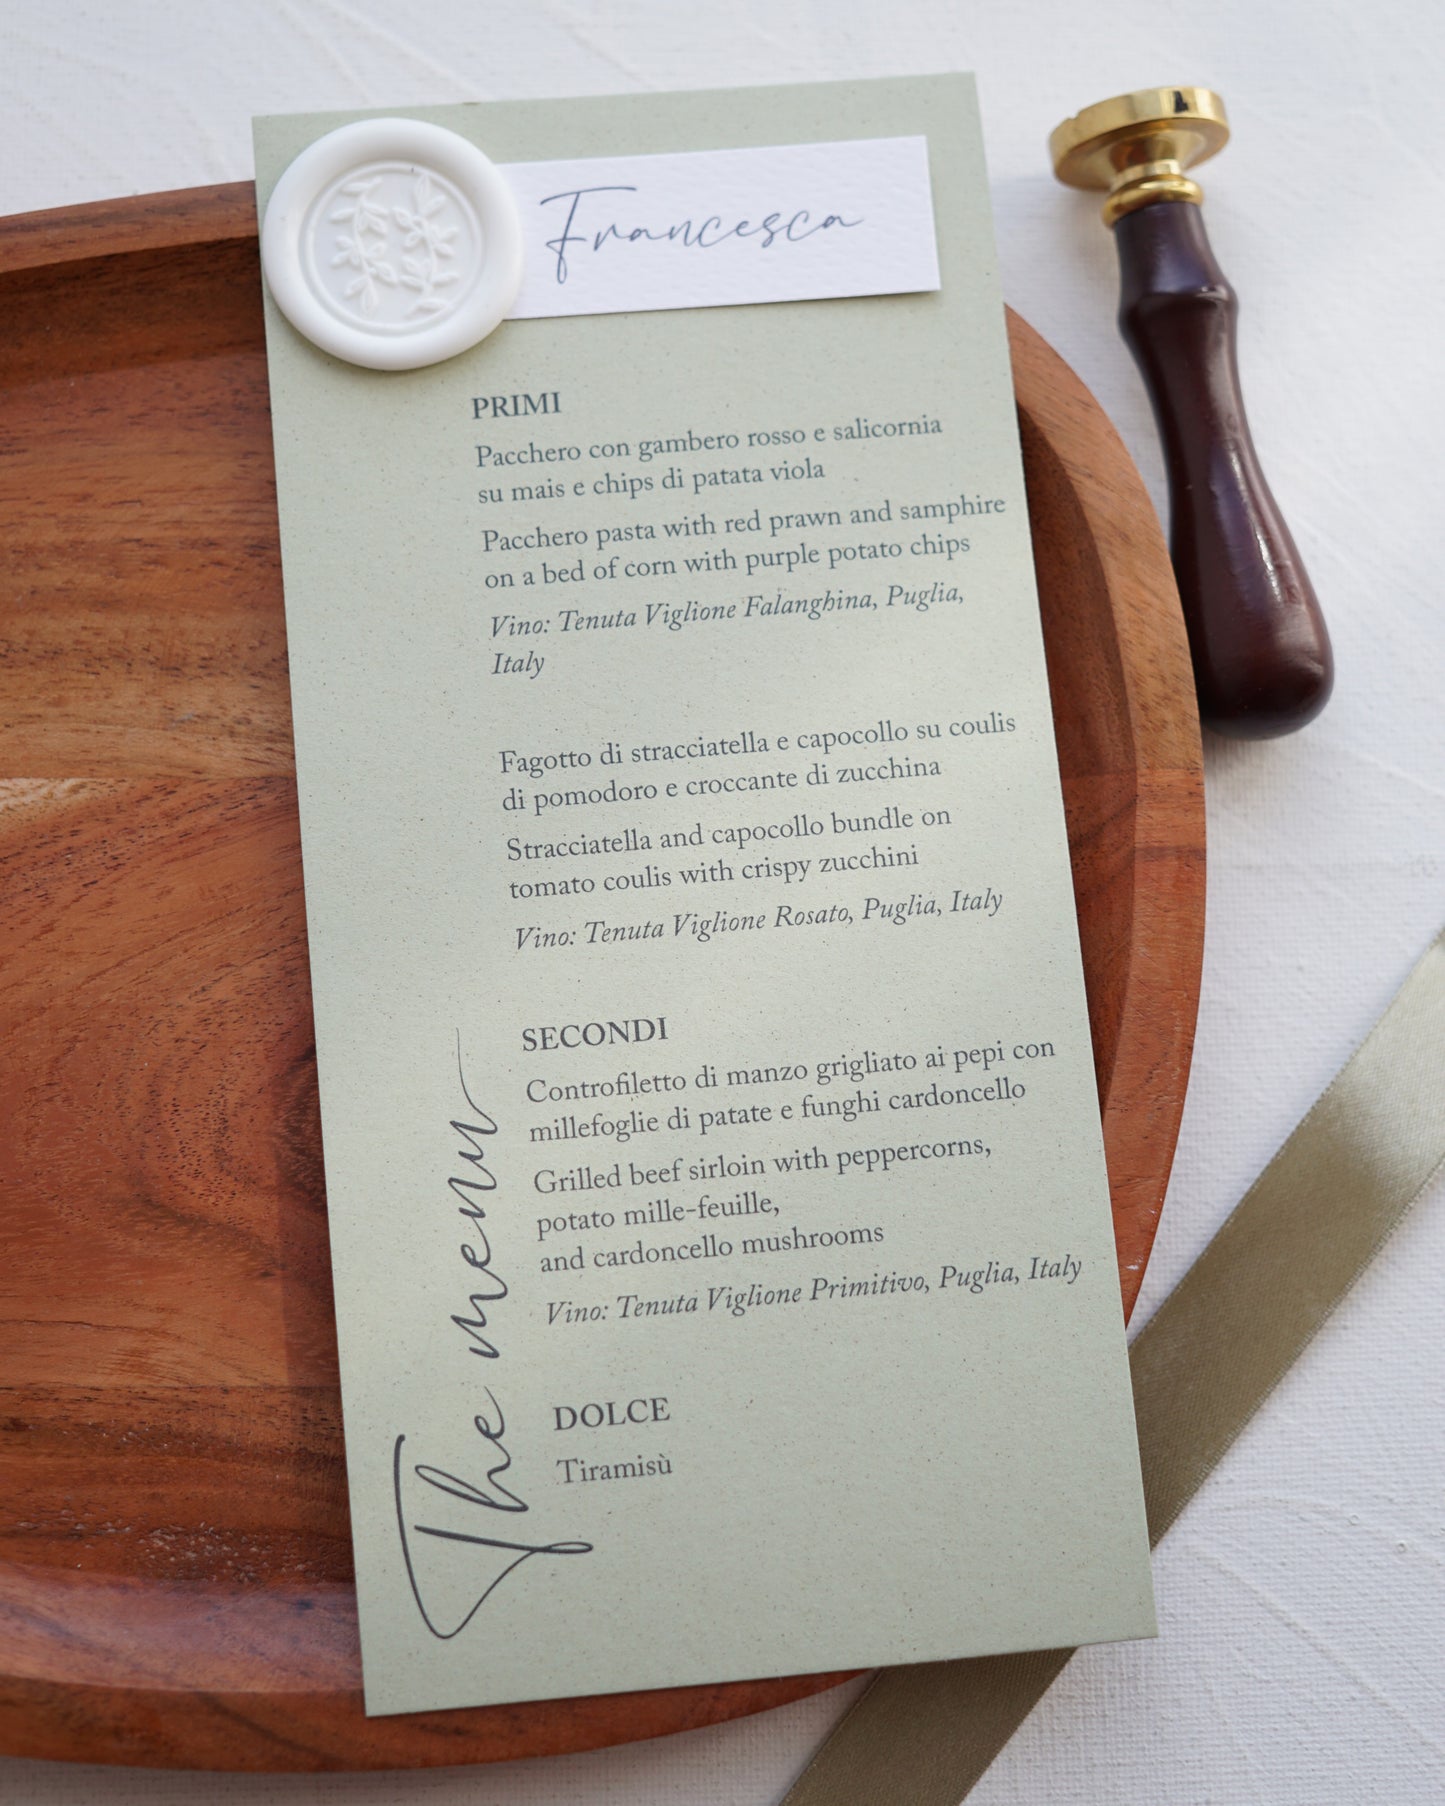 Francesca
PRIMI
Pacchero con gambero rosso e salicornia
su mais e chips di patata viola
Pacchero pasta with red prawn and samphire
on a bed of corn with purple potato chips
Vino: Tenuta Viglione Falanghina, Puglia,
Italy
Fagotto di stracciatella e capocollo su coulis
di pomodoro e croccante di zucchina
Stracciatella and capocollo bundle on
tomato coulis with crispy zucchini
Vino: Tenuta Viglione Rosato, Puglia, Italy
SECONDI
Controfiletto di manzo grigliato ai pepi con
millefoglie di patate e funghi cardoncello
Grilled beef sirloin with peppercorns,
potato mille-feuille,
and cardoncello mushrooms
Vino: Tenuta Viglione Primitivo, Puglia, Italy
DOLCE
Tiramisù
The menu